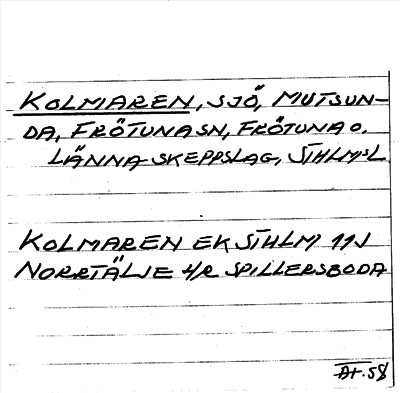 KOLMAREN, SJÖ, MUTSUN-
DA, FRÖTUNA SN, FRÖTUNA O.
LÄNNA SKEPPSLAG, STHLMS L
KOLMAREN EK STHLM 11J
NORRTÄLJE 4/R SPILLERSBODA